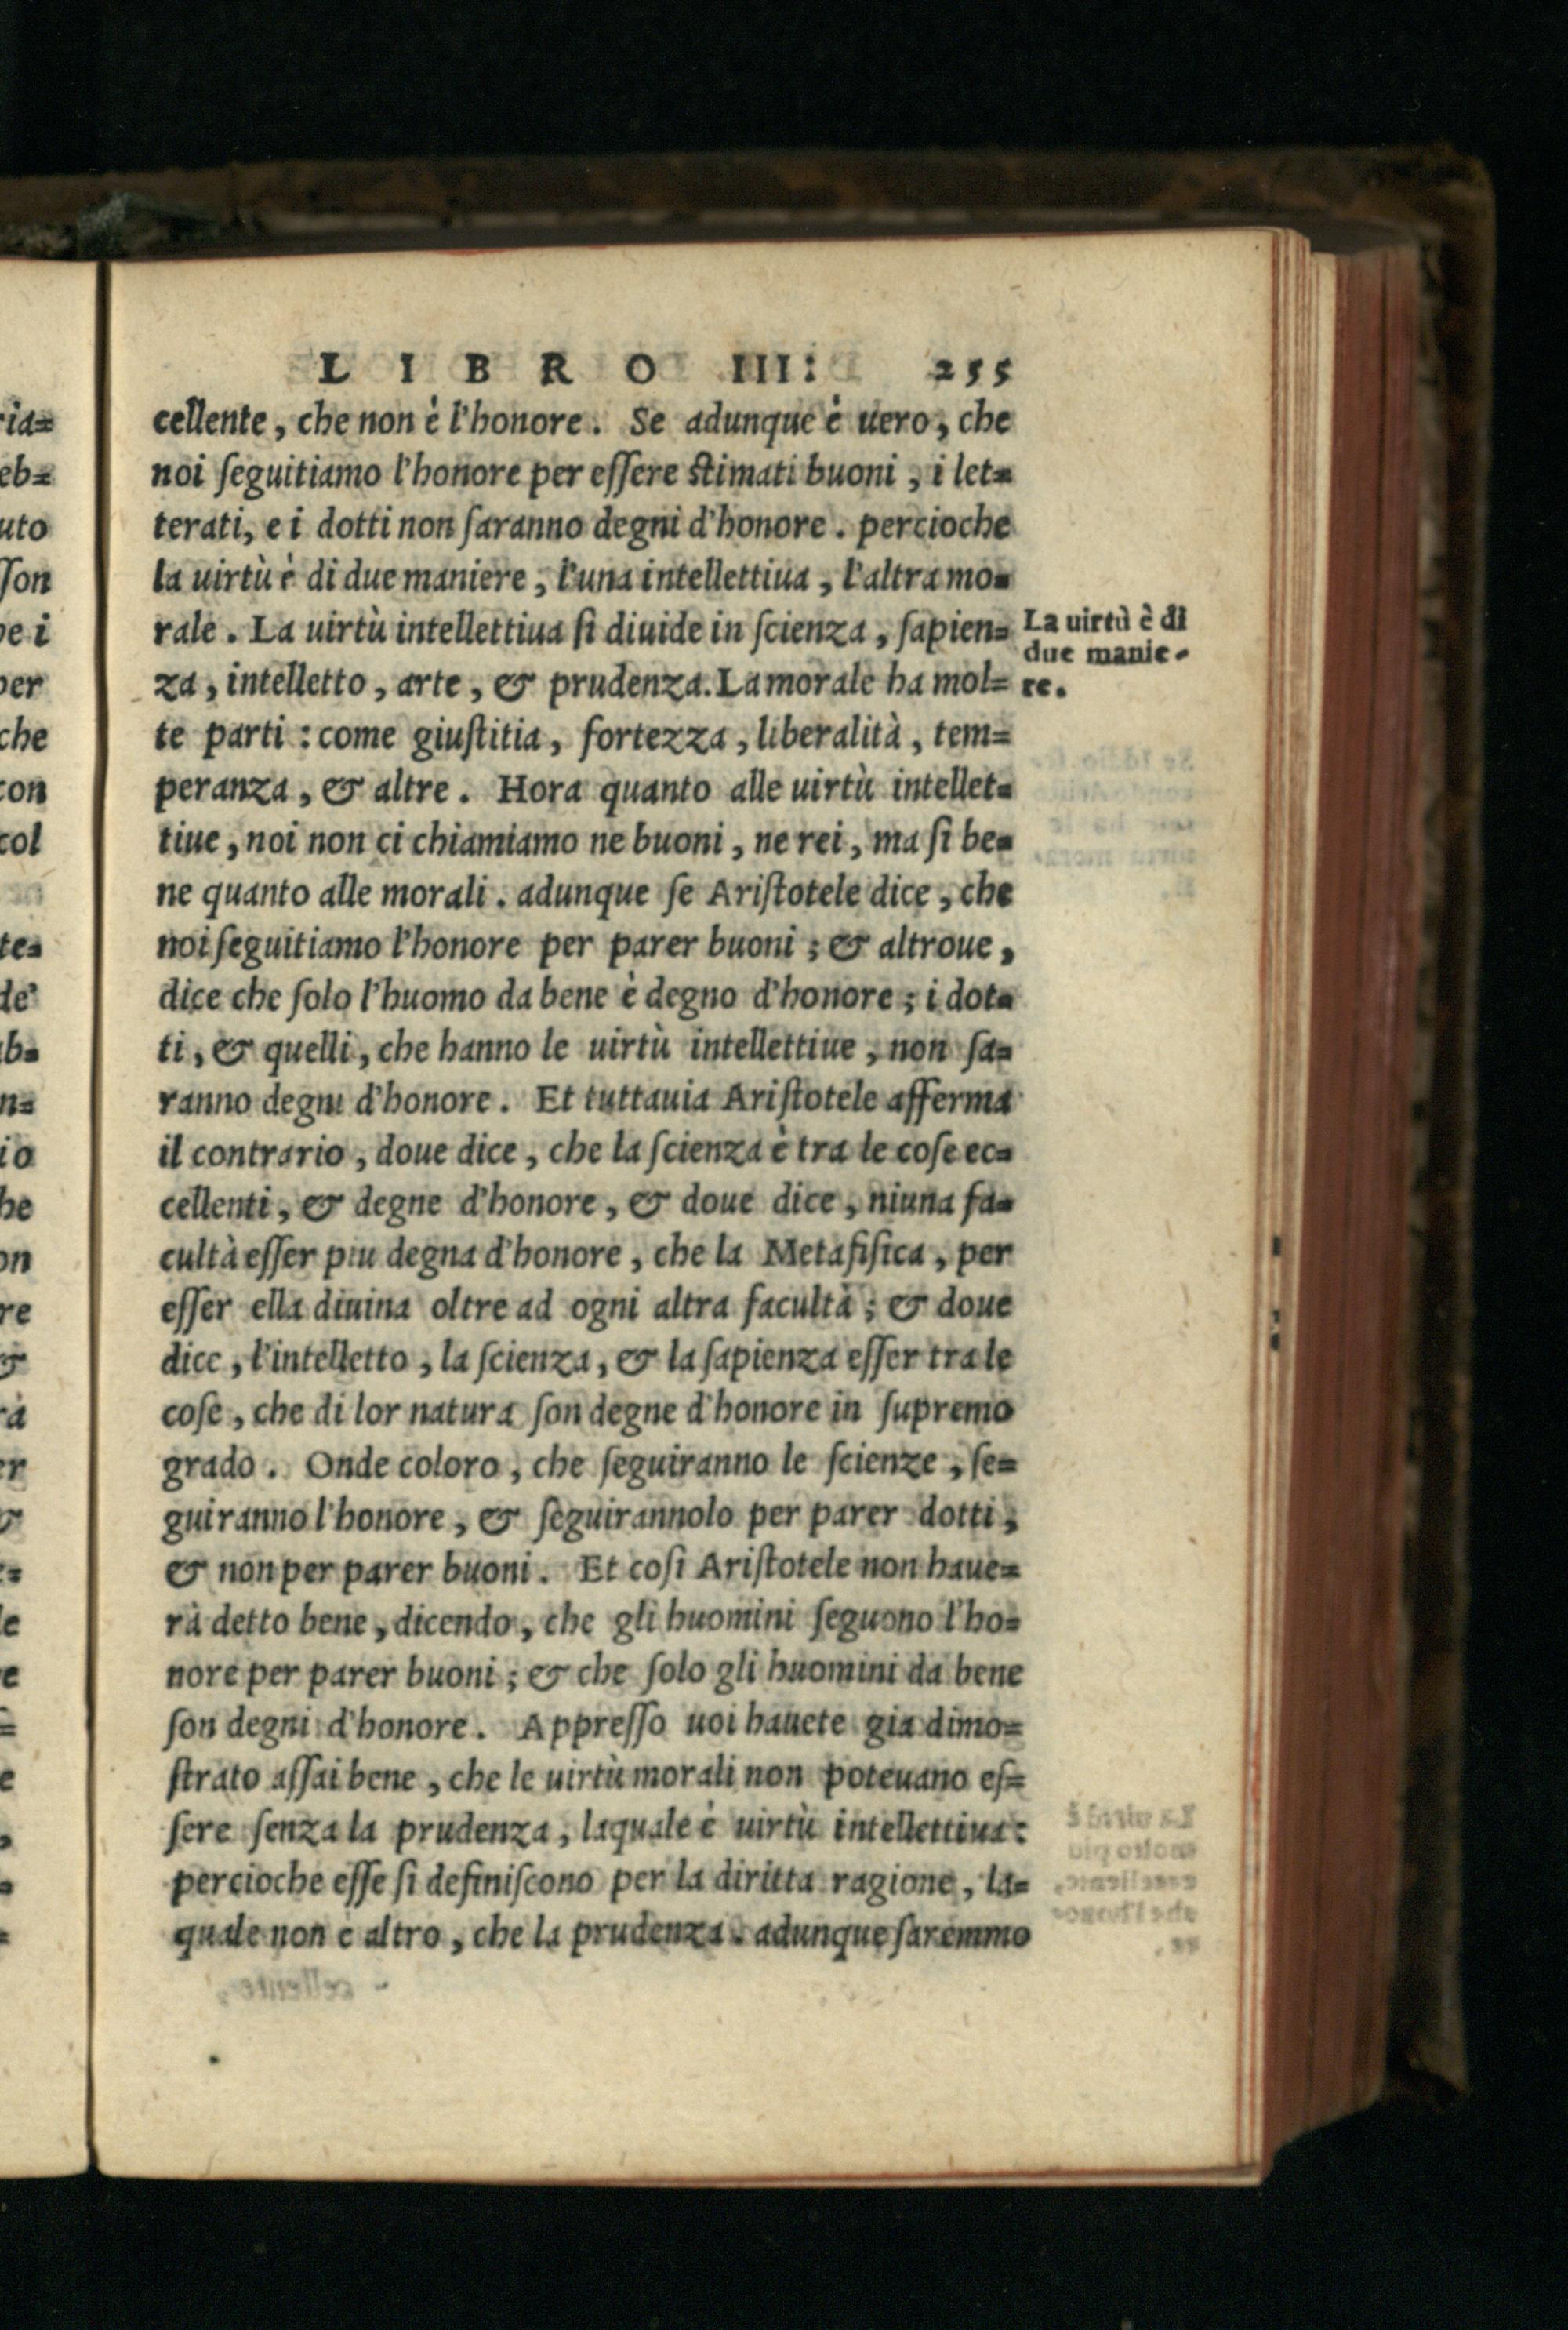 LIBRO III: 255
cellente, che non è l'honore. Se adunque è uero, che
noi ſeguitiamo l'honore per eſſere ſtimati buoni, i let=
terati, e i dotti non ſaranno degni d'honore. percioche
la uirtù è di due maniere, l'una intellettiua, l'altra mo=
rale. La uirtù intellettiua ſi diuide in ſcienza, ſapien=
za, intelletto, arte, & prudenza. La morale ha mol=
te parti: come giuſtitia, fortezza, liberalità, tem=
peranza, & altre. Hora quanto alle uirtù intellet=
tiue, noi non ci chiamiamo ne buoni, ne rei, ma ſi be=
ne quanto alle morali. adunque ſe Ariſtotele dice, che
noi ſeguitiamo l'honore per parer buoni; & altroue,
dice che ſolo l'huomo da bene è degno d'honore; i dot=
ti, & quelli, che hanno le uirtù intellettiue, non ſa=
ranno degni d'honore. Et tuttauia Ariſtotele afferma
il contrario, doue dice, che la ſcienza è tra le coſe ec=
cellenti, & degne d'honore, & doue dice, niuna fa=
cultà eſſer piu degna d'honore, che la Metafiſica, per
eſſer ella diuina oltre ad ogni altra facultà; & doue
dice, l'intelletto, la ſcienza, & la ſapienza eſſer tra le
coſe, che di lor natura ſon degne d'honore in ſupremo
grado. Onde coloro, che ſeguiranno le ſcienze, ſe=
guiranno l'honore, & ſeguirannolo per parer dotti,
& non per parer buoni. Et coſi Ariſtotele non haue=
rà detto bene, dicendo, che gli huomini ſeguono l'ho=
nore per parer buoni; & che ſolo gli huomini da bene
ſon degni d'honore. Appreſſo uoi hauete gia dimo=
ſtrato aſſai bene, che le uirtù morali non poteuano eſ=
ſere ſenza la prudenza, laquale è uirtù intellettiua:
percioche eſſe ſi definiſcono per la diritta ragione, la=
quale non e altro, che la prudenza. adunque ſaremmo
La uirtù è di
due manie-
re.